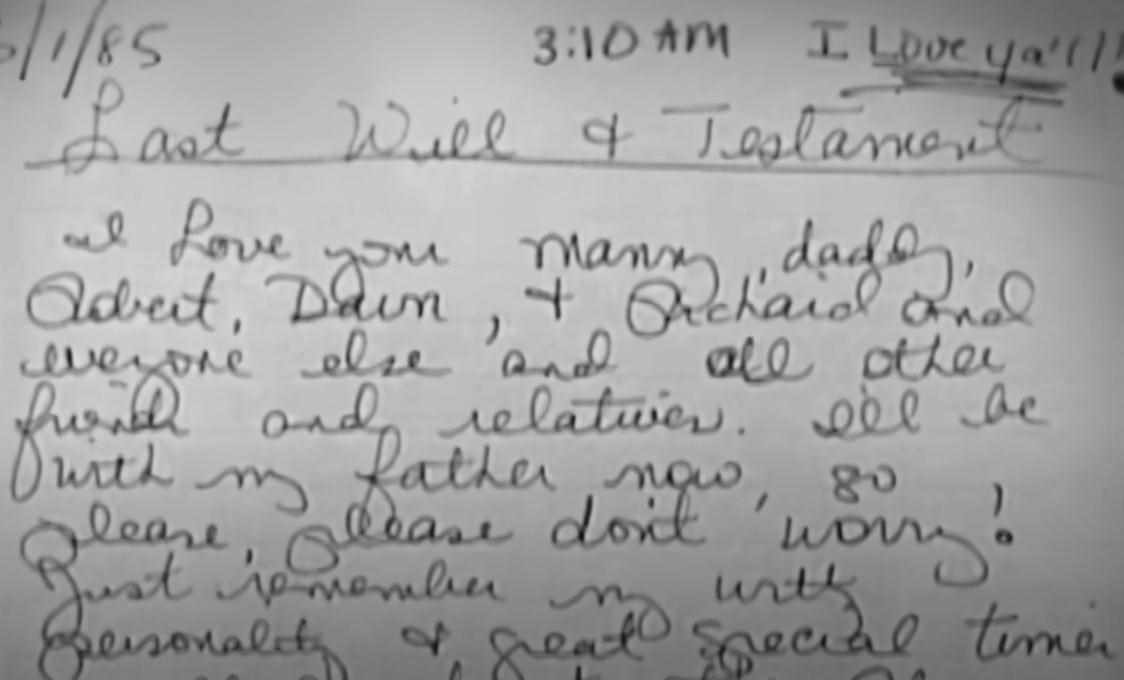 6/1/85 3:10 AM I Love ya'll!
Last Will & Testament
I Love you mammy, daddy,
Robert, Dawn, & Richard and
everyone else and all other
friends and relatives. I'll be
with my father now, so
please, please don't worry!
Just remember my witty
personality & great special times